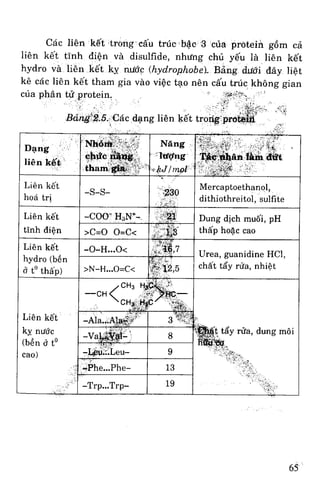 Các liên kết trong cấu trúc bậc 3 của protein gồm cả
liên kết tĩnh điện và disulfide, nhưng chủ yếu là liên kết
hydro và liên kết kỵ nước (hydrophobe). Bảng dưới đây liệt
kê các liên kết tham gia vào việc tạo nên cấu trúc không gian
của phân tử protein.
Bảng 2.5. Các dạng liên kết trong protein
Dạng liên kết | Nhóm chức năng tham gia | Năng lượng kJ/mol | Tác nhân làm đứt
Liên kết hoá trị | -S-S- | 230 | Mercaptoethanol, dithiothreitol, sulfite
Liên kết tĩnh điện | -COO⁻ H₃N⁺- | 21 | Dung dịch muối, pH thấp hoặc cao
>C=O O=C< | 1,3
Liên kết hydro (bền ở t⁰ thấp) | -O-H...O< | 16,7 | Urea, guanidine HCl, chất tẩy rửa, nhiệt
>N-H...O=C< | 12,5
Liên kết kỵ nước (bền ở t⁰ cao) | —CH CH₃ CH₃ H₃C H₃C HC— | Chất tẩy rửa, dung môi hữu cơ
-Ala...Ala- | 3
-Val...Val- | 8
-Leu...Leu- | 9
-Phe...Phe- | 13
-Trp...Trp- | 19
65